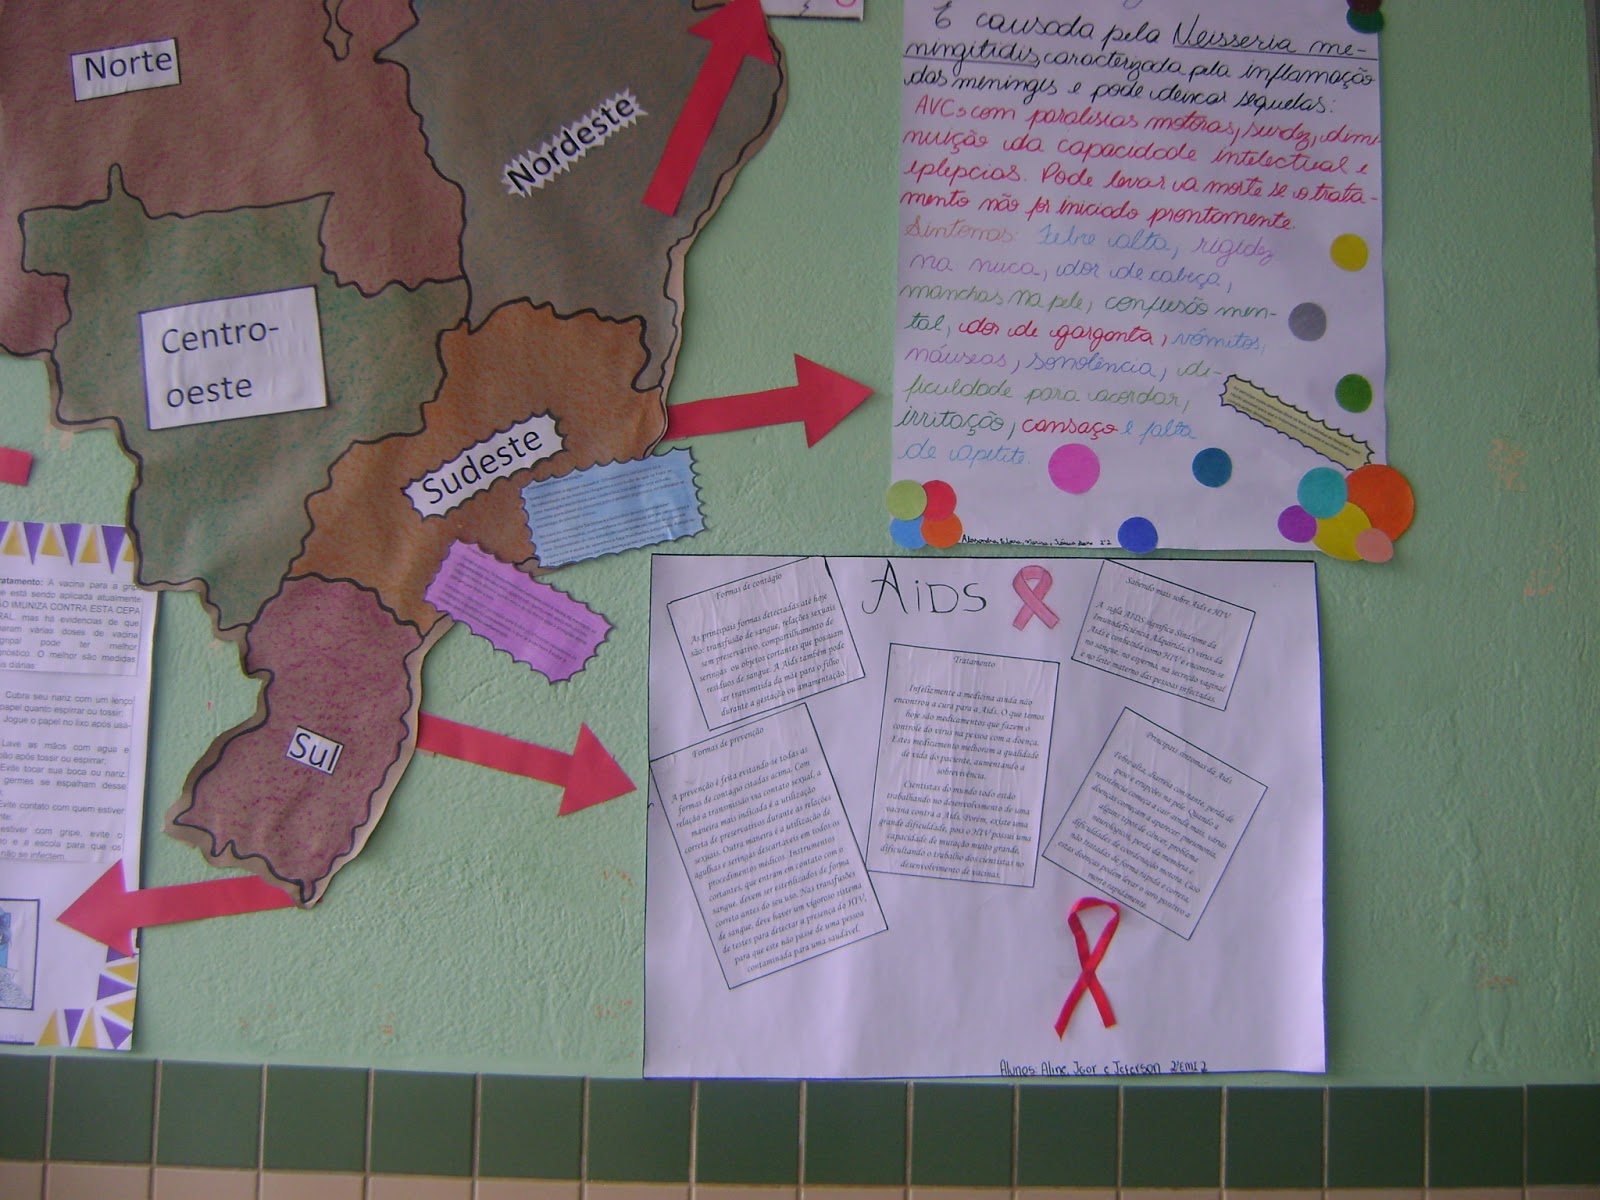 Norte
Nordeste
Centro-
oeste
Sudeste
Sul
É causada pela Neisseria me-
ningitidis, caracterizada pela inflamação
das meninges e pode deixar sequelas:
AVCs com paralisias motoras, surdez, dimi-
nuição da capacidade intelectual e
eplepcias. Pode levar a morte se o trata-
mento não for iniciado prontamente.
Sintomas: Febre alta, rigidez
na nuca, dor de cabeça,
manchas na pele, confusão men-
tal, dor de garganta, vômitos,
náuseas, sonolência, di-
ficuldade para acordar,
irritação, cansaço e falta
de apetite.
ratamento: A vacina para a gripe
e está sendo aplicada atualmente
ÃO IMUNIZA CONTRA ESTA CEPA
RAL, mas há evidencias de que
aram várias doses de vacina
gripal pode ter melhor
gnostico. O melhor são medidas
diárias:
Cubra seu nariz com um lenço
papel quanto espirrar ou tossir;
Jogue o papel no lixo após usá-
Lave as mãos com agua e
após tossir ou espirrar;
Evite tocar sua boca ou nariz.
germes se espalham desse
Evite contato com quem estiver
estiver com gripe, evite o
o e a escola para que os
não se infectem.
AIDS
Formas de contágio
As principais formas detectadas até hoje
são: transfusão de sangue, relações sexuais
sem preservativo, compartilhamento de
seringas ou objetos cortantes que possuam
resíduos de sangue. A Aids também pode
ser transmitida da mãe para o filho
durante a gestação ou amamentação.
Sabendo mais sobre Aids e HIV
A sigla AIDS significa Síndrome da
Imunodeficiência Adquirida. O vírus da
Aids é conhecido como HIV e encontra-se
no sangue, no esperma, na secreção vaginal
e no leite materno das pessoas infectadas.
Tratamento
Infelizmente a medicina ainda não
encontrou a cura para a Aids. O que temos
hoje são medicamentos que fazem o
controle do vírus na pessoa com a doença.
Estes medicamento melhoram a qualidade
de vida do paciente, aumentando a
sobrevivência.
Cientistas do mundo todo estão
trabalhando no desenvolvimento de uma
vacina contra a Aids. Porém, existe uma
grande dificuldade, pois o HIV possui uma
capacidade de mutação muito grande,
dificultando o trabalho dos cientistas no
desenvolvimento de vacinas.
Formas de prevenção
A prevenção é feita evitando-se todas as
formas de contágio citadas acima. Com
relação a transmissão via contato sexual, a
maneira mais indicada é a utilização
correta de preservativos durante as relações
sexuais. Outra maneira é a utilização de
agulhas e seringas descartáveis em todos os
procedimentos médicos. Instrumentos
cortantes, que entram em contato com o
sangue, devem ser esterilizados de forma
correta antes do seu uso. Nas transfusões
de sangue, deve haver um vigoroso sistema
de testes para detectar a presença do HIV,
para que este não passe de uma pessoa
contaminada para uma saudável.
Principais sintomas da Aids
Febre alta, diarréia constante, perda de
peso e erupções na pele. Quando a
resistência começa a cair ainda mais, várias
doenças começam a aparecer: pneumonia,
alguns tipos de câncer, problema
neurológicos, perda da memória e
dificuldades de coordenação motora. Caso
não tratadas de forma rápida e correta,
estas doenças podem levar o soro positivo a
morte rapidamente.
Alunos: Aline, Igor e Jeferson 2ºEMI 2